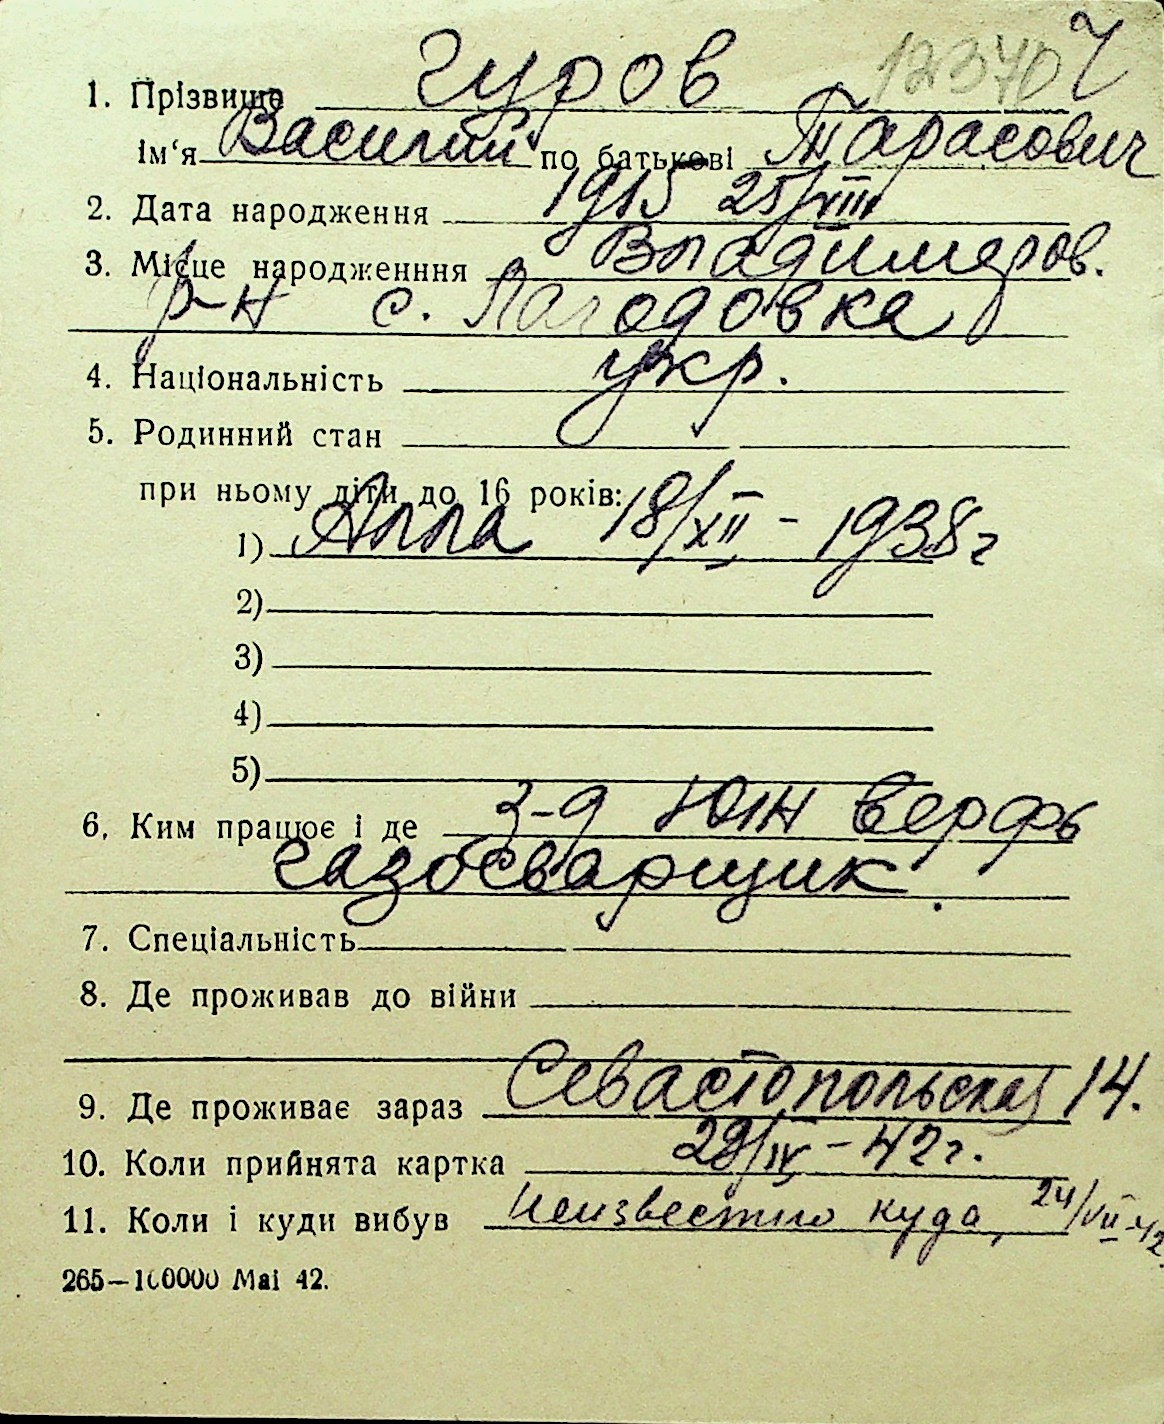 12370 Ч
1. Прізвище Гуров
ім'я Василий по батькові Тарасович
2. Дата народження 1915 25/VIII
3. Місце народженння Владимеров.
р-н с. Лагодовка
4. Національність укр.
5. Родинний стан
при ньому діти до 16 років:
1) Алла 18/XII - 1938 г
2)
3)
4)
5)
6. Ким працює і де з-д Южн верфь
газосварщик.
7. Спеціальність
8. Де проживав до війни
9. Де проживає зараз Севастопольская 14.
10. Коли прийнята картка 29/IV - 42 г.
11. Коли і куди вибув неизвестно куда, 24/VII-42
265—100000 Mai 42.